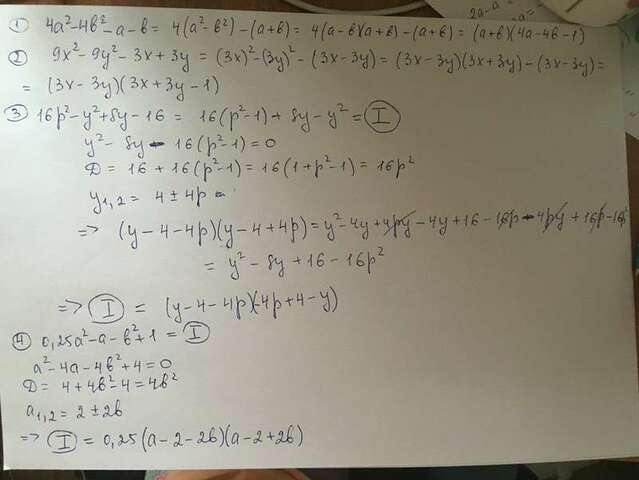 ① 4a²-4b²-a-b = 4(a²-b²)-(a+b) = 4(a-b)(a+b)-(a+b) = (a+b)(4a-4b-1)
② 9x²-9y²-3x+3y = (3x)²-(3y)²-(3x-3y) = (3x-3y)(3x+3y)-(3x-3y) =
= (3x-3y)(3x+3y-1)
③ 16p²-y²+8y-16 = 16(p²-1)+8y-y² = Ⅰ
y²-8y-16(p²-1)=0
D = 16+16(p²-1) = 16(1+p²-1) = 16p²
y₁,₂ = 4±4p
=> (y-4-4p)(y-4+4p) = y²-4y+4py-4y+16-16p-4py+16p-16p²
= y²-8y+16-16p²
=> Ⅰ = (y-4-4p)(-4p+4-y)
④ 0,25a²-a-b²+1 = Ⅰ
a²-4a-4b²+4=0
D = 4+4b²-4 = 4b²
a₁,₂ = 2±2b
=> Ⅰ = 0,25(a-2-2b)(a-2+2b)